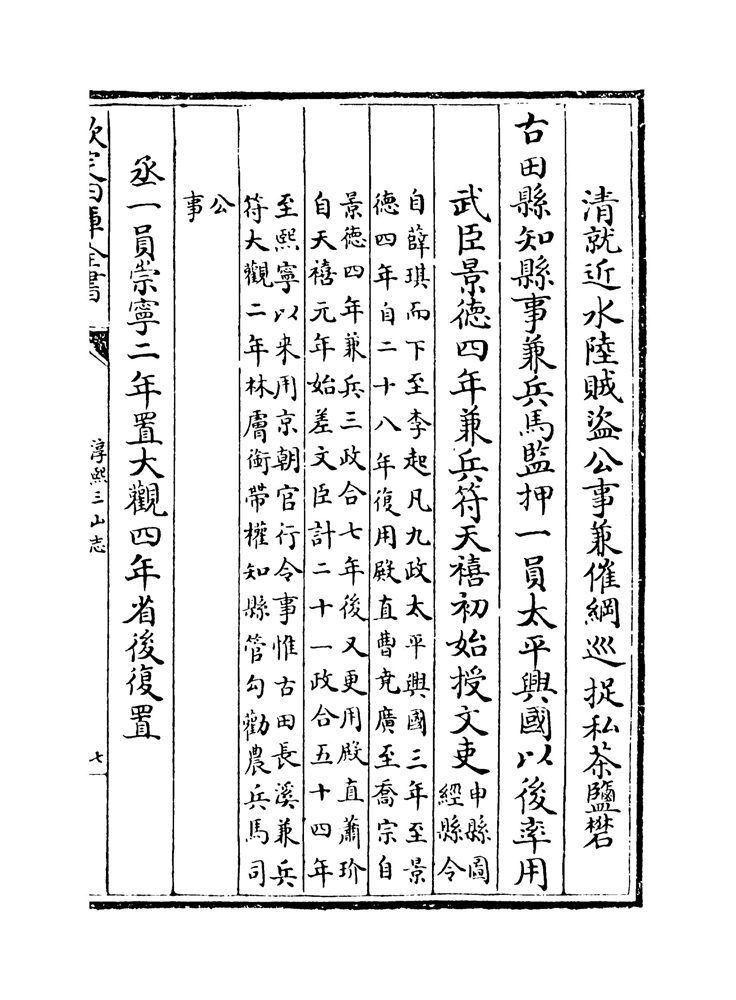 清就近水陸賊盜公事兼催綱巡捉私茶鹽礬
古田縣知縣事兼兵馬監押一員太平興國以後率用
武臣景德四年兼兵符天禧初始授文吏
申縣圖
經縣令
自薛琪而下至李起凡九政太平興國三年至景
德四年自二十八年復用殿直曹克廣至喬宗自
景德四年兼兵三政合七年後又更用殿直蕭玠
自天禧元年始差文臣計二十一政合五十四年
至熙寧以來用京朝官行令事惟古田長溪兼兵
符大觀二年林膚銜帶權知縣管勾勸農兵馬司
公
事
丞一員崇寧二年置大觀四年省後復置
欽定四庫全書
淳熙三山志